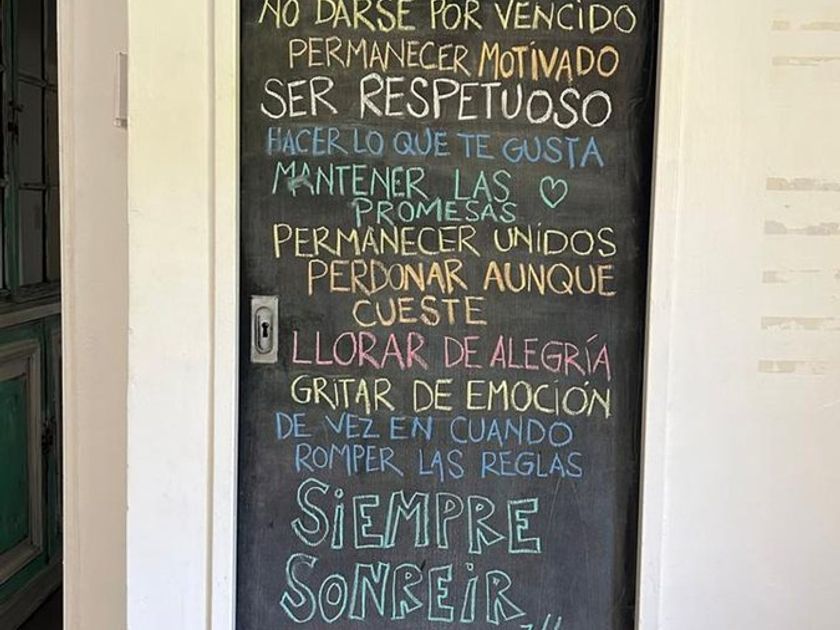 NO DARSE POR VENCIDO
PERMANECER MOTIVADO
SER RESPETUOSO
HACER LO QUE TE GUSTA
MANTENER LAS
PROMESAS
PERMANECER UNIDOS
PERDONAR AUNQUE
CUESTE
LLORAR DE ALEGRÍA
GRITAR DE EMOCIÓN
DE VEZ EN CUANDO
ROMPER LAS REGLAS
SIEMPRE
SONREIR